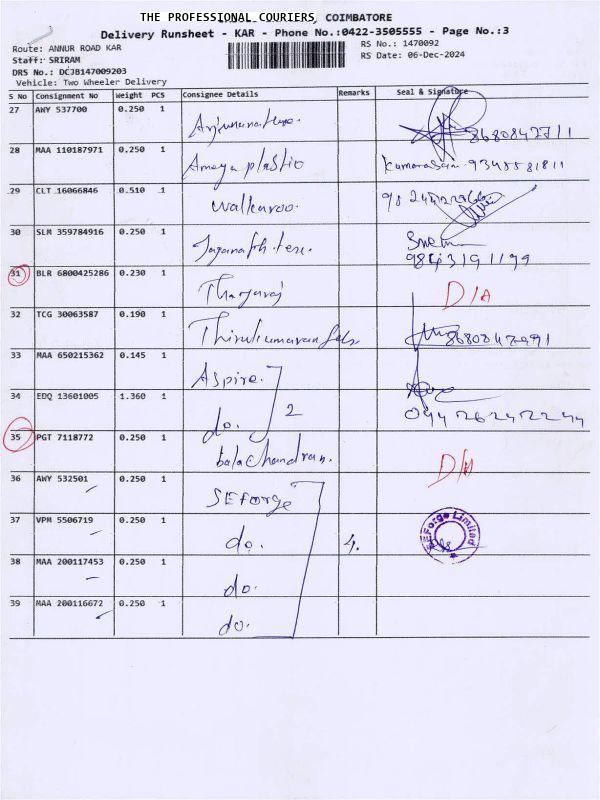 THE PROFESSIONAL COURIERS, COIMBATORE
Delivery Runsheet - KAR - Phone No.:0422-3505555 - Page No.:3
Route: ANNUR ROAD KAR
RS No.: 1470092
Staff: SRIRAM
RS Date: 06-Dec-2024
DRS No.: DCJB147009203
Vehicle: Two Wheeler Delivery
S No Consignment No Weight PCS Consignee Details Remarks Seal & Signature
27 AWY 537700 0.250 1
28 MAA 110187971 0.250 1 Amaya plastic
29 CLT 16066846 0.510 1 Walkaroo.
30 SLM 359784916 0.250 1
9843191199
31 BLR 6800425286 0.230 1 Thangaraj D/A
32 TCG 30063587 0.190 1
33 MAA 650215362 0.145 1 Aspire.
34 EDQ 13601005 1.360 1 do. 2
35 PGT 7118772 0.250 1 balachandran. D/A
36 AWY 532501 0.250 1 SEForge
37 VPM 5506719 0.250 1 do. 4. SEForge Limited
38 MAA 200117453 0.250 1 do.
39 MAA 200116672 0.250 1 do.